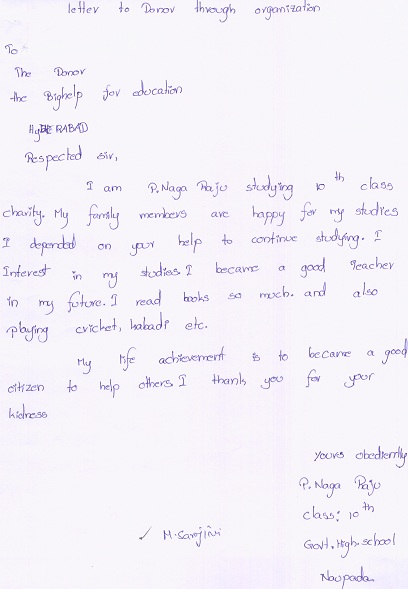 letter to Donor through organization
To
The Donor
the Bighelp for education
HyDERABAD
Respected sir,
I am P.Naga Raju studying 10th class
charity. My family members are happy for my studies
I depended on your help to continue studying. I
Interest in my studies. I became a good Teacher
in my future. I read books so much. and also
playing cricket, kabadi etc.
My life achievement is to became a good
citizen to help others. I thank you for your
kidness
yours obediently
P. Naga Raju
class: 10th
✓ M. Sarojini
Govt. High. school
Naupada